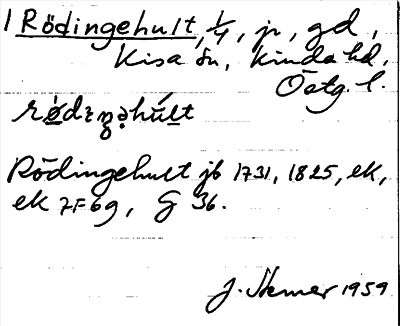 1 Rödingehult, 1/4, jr, gd,
Kisa sn, Kinda hd,
Östg. l.
rø̀dɪŋəhúlt
Rödingehult jb 1731, 1825, ek,
ek 7F6g, G 36.
J. Nemer 1959